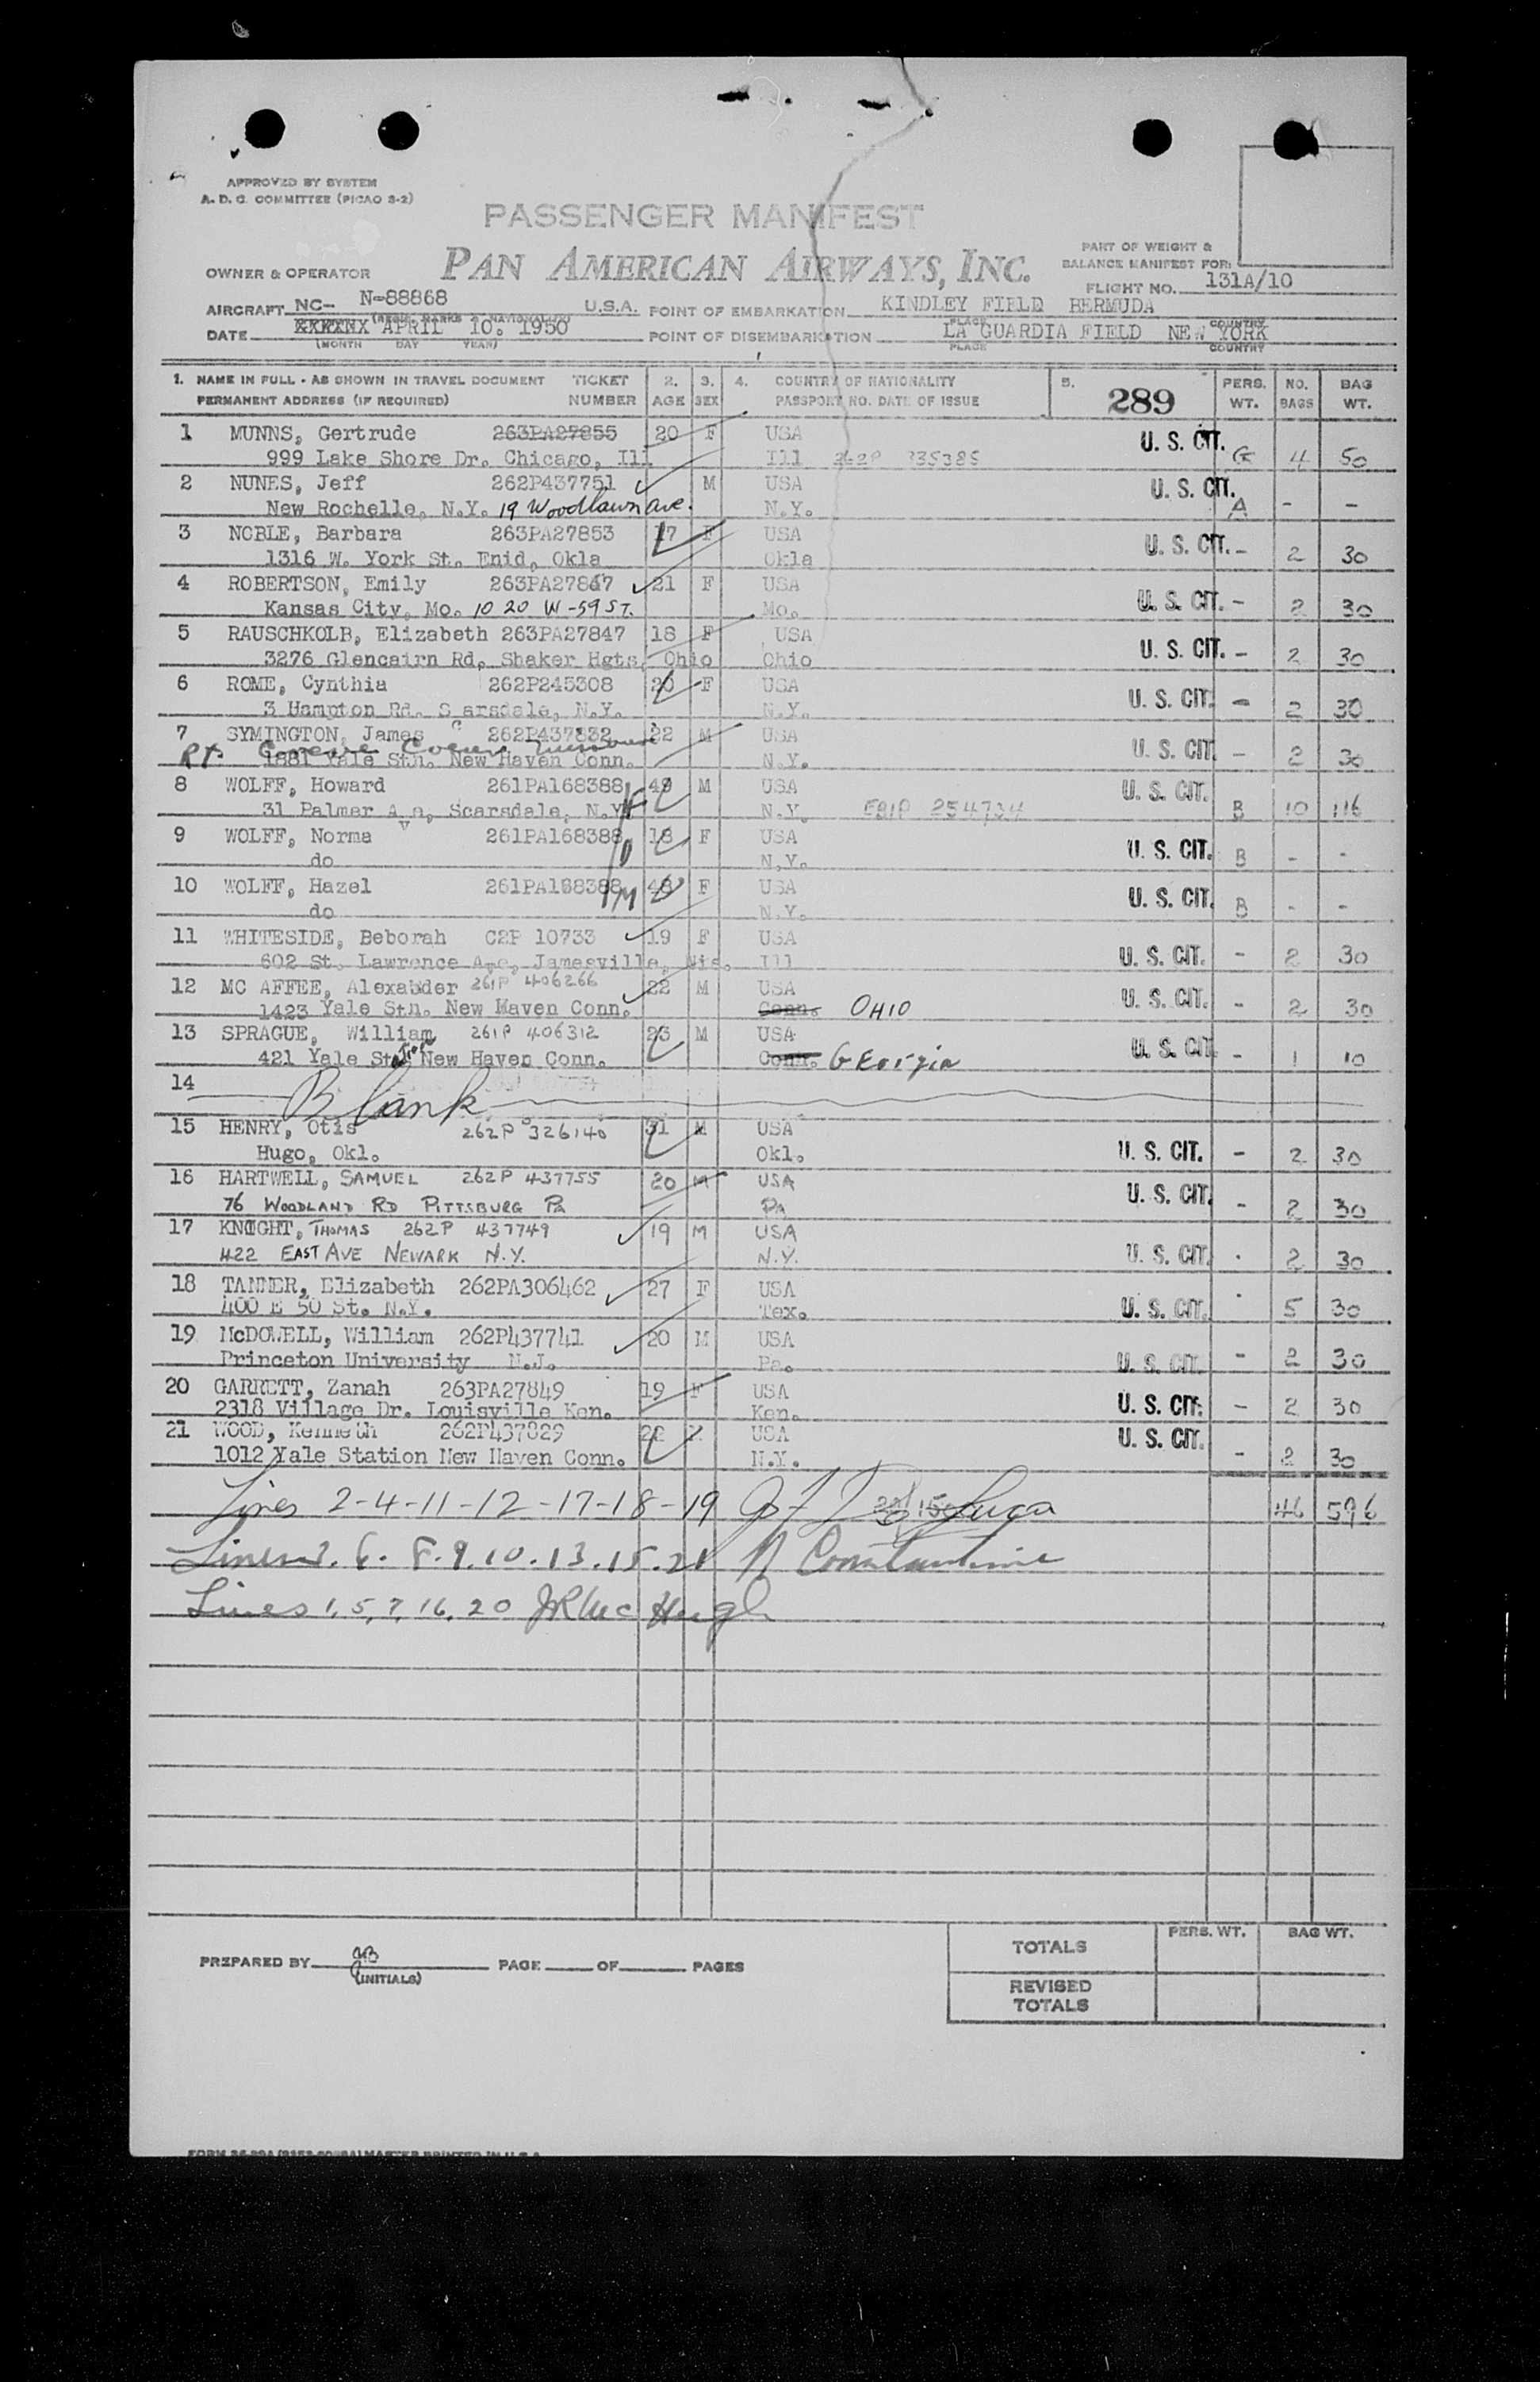 APPROVED BY SYSTEM
A. D. C. COMMITTEE (PICAO S-2)
PASSENGER MANIFEST
PAN AMERICAN AIRWAYS, INC.
PART OF WEIGHT &
BALANCE MANIFEST FOR:
OWNER & OPERATOR
FLIGHT NO. 131A/10
AIRCRAFT NC- N-88868 U.S.A. POINT OF EMBARKATION KINDLEY FIELD BERMUDA
(REGIS. MARKS & NATIONALITY) PLACE COUNTRY
DATE APRIL 10. 1950 POINT OF DISEMBARKATION LA GUARDIA FIELD NEW YORK
(MONTH DAY YEAR) PLACE COUNTRY
1. NAME IN FULL - AS SHOWN IN TRAVEL DOCUMENT TICKET 2. 3. 4. COUNTRY OF NATIONALITY 5. 289 PERS. NO. BAG
PERMANENT ADDRESS (IF REQUIRED) NUMBER AGE SEX PASSPORT NO. DATE OF ISSUE WT. BAGS WT.
1 MUNNS, Gertrude 263PA27855 20 F USA U. S. CIT.
999 Lake Shore Dr. Chicago, Ill Ill 262P 235385 G 4 50
2 NUNES, Jeff 262P437751 M USA U. S. CIT.
New Rochelle, N.Y. 19 Woodlawn ave. N.Y. A - -
3 NOBLE, Barbara 263PA27853 17 F USA U. S. CIT.
1316 W. York St. Enid, Okla Okla - 2 30
4 ROBERTSON, Emily 263PA27867 21 F USA U. S. CIT.
Kansas City, Mo. 1020 W-59 ST. Mo. - 2 30
5 RAUSCHKOLB, Elizabeth 263PA27847 18 F USA U. S. CIT.
3276 Glencairn Rd, Shaker Hgts, Ohio Ohio - 2 30
6 ROME, Cynthia 262P245308 20 F USA U. S. CIT.
3 Hampton Rd. S arsdale, N.Y. N.Y. - 2 30
c
7 SYMINGTON, James 262P437832 22 M USA U. S. CIT.
Rt.
1881 Yale Stn. New Haven Conn. N.Y. - 2 30
8 WOLFF, Howard 261PA168388 49 M USA U. S. CIT.
31 Palmer A e, Scarsdale, N.Y. N.Y. B 10 116
v
9 WOLFF, Norma 261PA168388 18 F USA U. S. CIT.
do N.Y. B - -
10 WOLFF, Hazel 261PA168388 48 F USA U. S. CIT.
do N.Y. B - -
11 WHITESIDE, Beborah C2P 10733 19 F USA U. S. CIT.
602 St. Lawrence Ave, Jamesville, Wis. Ill - 2 30
12 MC AFFEE, Alexander 261P 406266 22 M USA U. S. CIT.
1423 Yale Stn. New Haven Conn. Conn. OHIO - 2 30
13 SPRAGUE, William 261P 406312 23 M USA U. S. CIT.
421 Yale New Haven Conn. Conn. GEorgia - 1 10
14 Blank
15 HENRY, Otis 262P 326140 31 M USA
Hugo, Okl. Okl. U. S. CIT. - 2 30
16 HARTWELL, SAMUEL 262P 437755 20 M USA U. S. CIT.
76 WOODLAND RD PITTSBURG PA PA - 2 30
17 KNIGHT, THOMAS 262P 437749 19 M USA
422 EAST AVE NEWARK N.Y. N.Y. U. S. CIT. - 2 30
18 TANNER, Elizabeth 262PA306462 27 F USA
400 E 50 St. N.Y. Tex. U. S. CIT. - 5 30
19 McDOWELL, William 262P437741 20 M USA
Princeton University N.J. Pa. U. S. CIT. - 2 30
20 GARRETT, Zanah 263PA27849 19 F USA
2318 Village Dr. Louisville Ken. Ken. U. S. CIT. - 2 30
21 WOOD, Kenneth 262P437829 22 M USA U. S. CIT.
1012 Yale Station New Haven Conn. N.Y. - 2 30
Lines 2-4-11-12-17-18-19 46 596
Lines 3. 6. 8. 9. 10. 13. 15. 21 N Constantine
Lines 1, 5, 7, 16, 20 JR McHugh
PREPARED BY (INITIALS) PAGE OF PAGES
PERS. WT. BAG WT.
TOTALS
REVISED
TOTALS